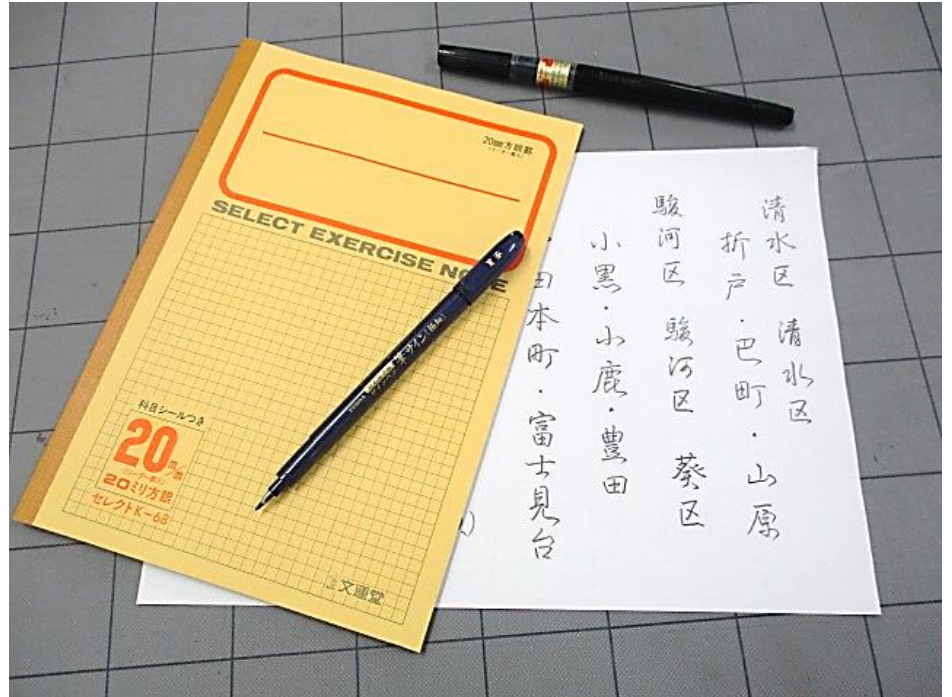 20mm方眼罫
SELECT EXERCISE NOTE
科目シールつき
20m/m
20ミリ方眼
セレクトK-68
文運堂
筆サイン(極細)
清水区 清水区
折戸・巴町・山原
駿河区 駿河区 葵区
小黒・小鹿・豊田
・田本町・富士見台